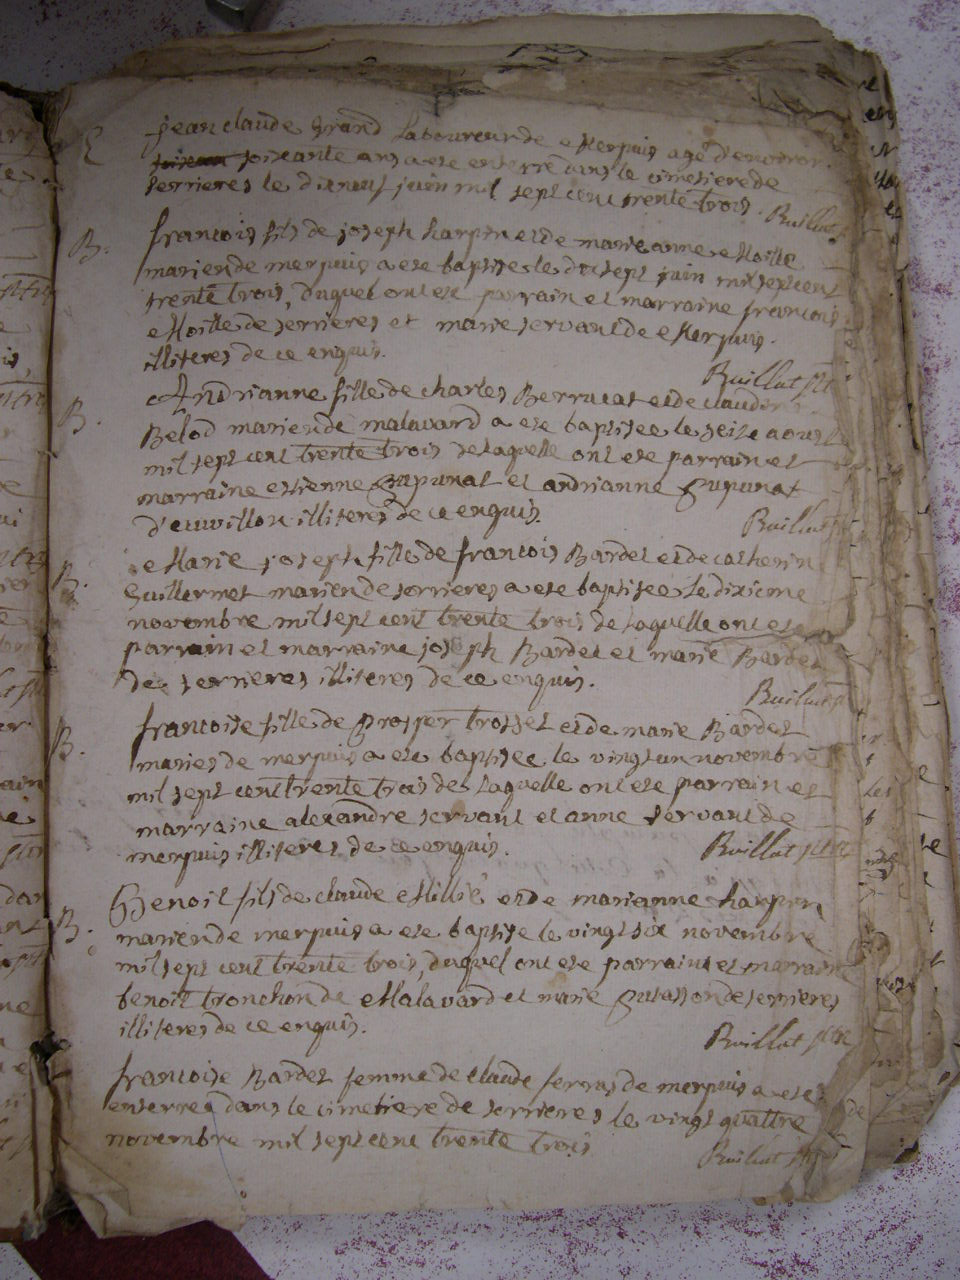 E jean claude grand laboureur de Merpuis agé d'environ
soixante ans a ete enterré dans le cimetiere de
serrieres le dixneuf juin mil sept cent trente trois.
Buillut
B. francois fils de joseph harpin et de marie anne Moille
marien de merpuis a ete baptise le dix sept juin mil sept cent
trente trois, duquel ont ete parrain et marraine francois
Moille de serrieres et marie servant de Merpuis.
illiteres de ce enquis.
Buillut ptre
B. Andrianne fille de charles Berrucat et de claudine
Belod marien de malavard a ete baptisee le seize aoust
mil sept cent trente trois de laquelle ont ete parrain et
marraine estienne Gupunat et andrianne Gupunat
d'euvillon illiteres de ce enquis.
Buillut
B. Marie joseph fille de francois Bardet et de catherin
Guillermet marien de serrieres a ete baptisee le dixieme
novembre mil sept cent trente trois de laquelle ont ete
parrain et marraine joseph Bardet et marie Bardet
de serrieres illiteres de ce enquis.
Buillut
B. francoise fille de Prosper trosset et de marie Bardet
maries de merpuis a ete baptisee le vingt un novembre
mil sept cent trente trois de laquelle ont ete parrain et
marraine alexandre servant et anne servant de
merpuis illiteres de ce enquis.
Buillut ptre
B. Benoit fils de claude Millié et de marianne harpin
marien de merpuis a ete baptise le vingt six novembre
mil sept cent trente trois, duquel ont ete parrain et marraine
benoit tronchon de Malavard et marie de serrieres
illiteres de ce enquis.
Buillut ptre
francoise Bardet femme de claude ferrus de merpuis a ete
enterree dans le cimetiere de serrieres le vingt quattre
novembre mil sept cent trente trois
Buillut